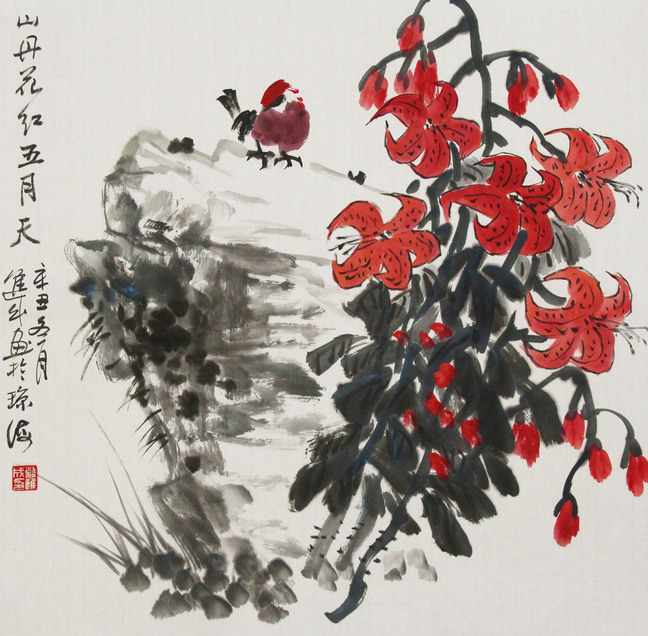 山丹花红五月天
辛丑冬月
进成画於琼海